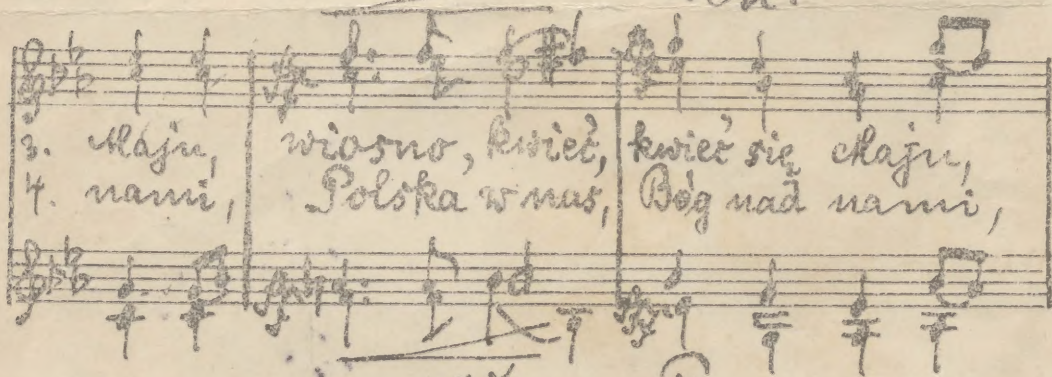 3. Maju, wiosno, kwieć, kwieć się Maju,
4. nami, Polska w nas, Bóg nad nami,